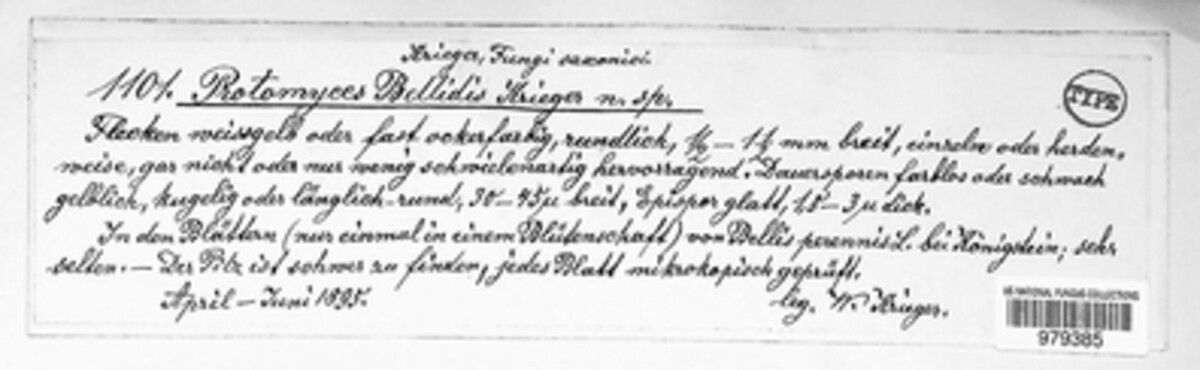 Krieger, Fungi saxonici.
1101. Protomyces Bellidis Krieger n. sp.
TYPE
Flecken weissgelb oder fast ockerfarbig, rundlich, ½ – 1½ mm breit, einzeln oder herden-
weise, gar nicht oder nur wenig schwielenartig hervorragend. Dauersporen farblos oder schwach
gelblich, kugelig oder länglich-rund, 30 – 45 µ breit, Epispor glatt, 1,5 – 3 µ dick.
In den Blättern (nur einmal in einem Blütenschaft) von Bellis perennis L. bei Königstein; sehr
selten. – Der Pilz ist schwer zu finden, jedes Blatt mikrokopisch geprüft.
April – Juni 1895. leg. W. Krieger.
US NATIONAL FUNGUS COLLECTIONS
979385